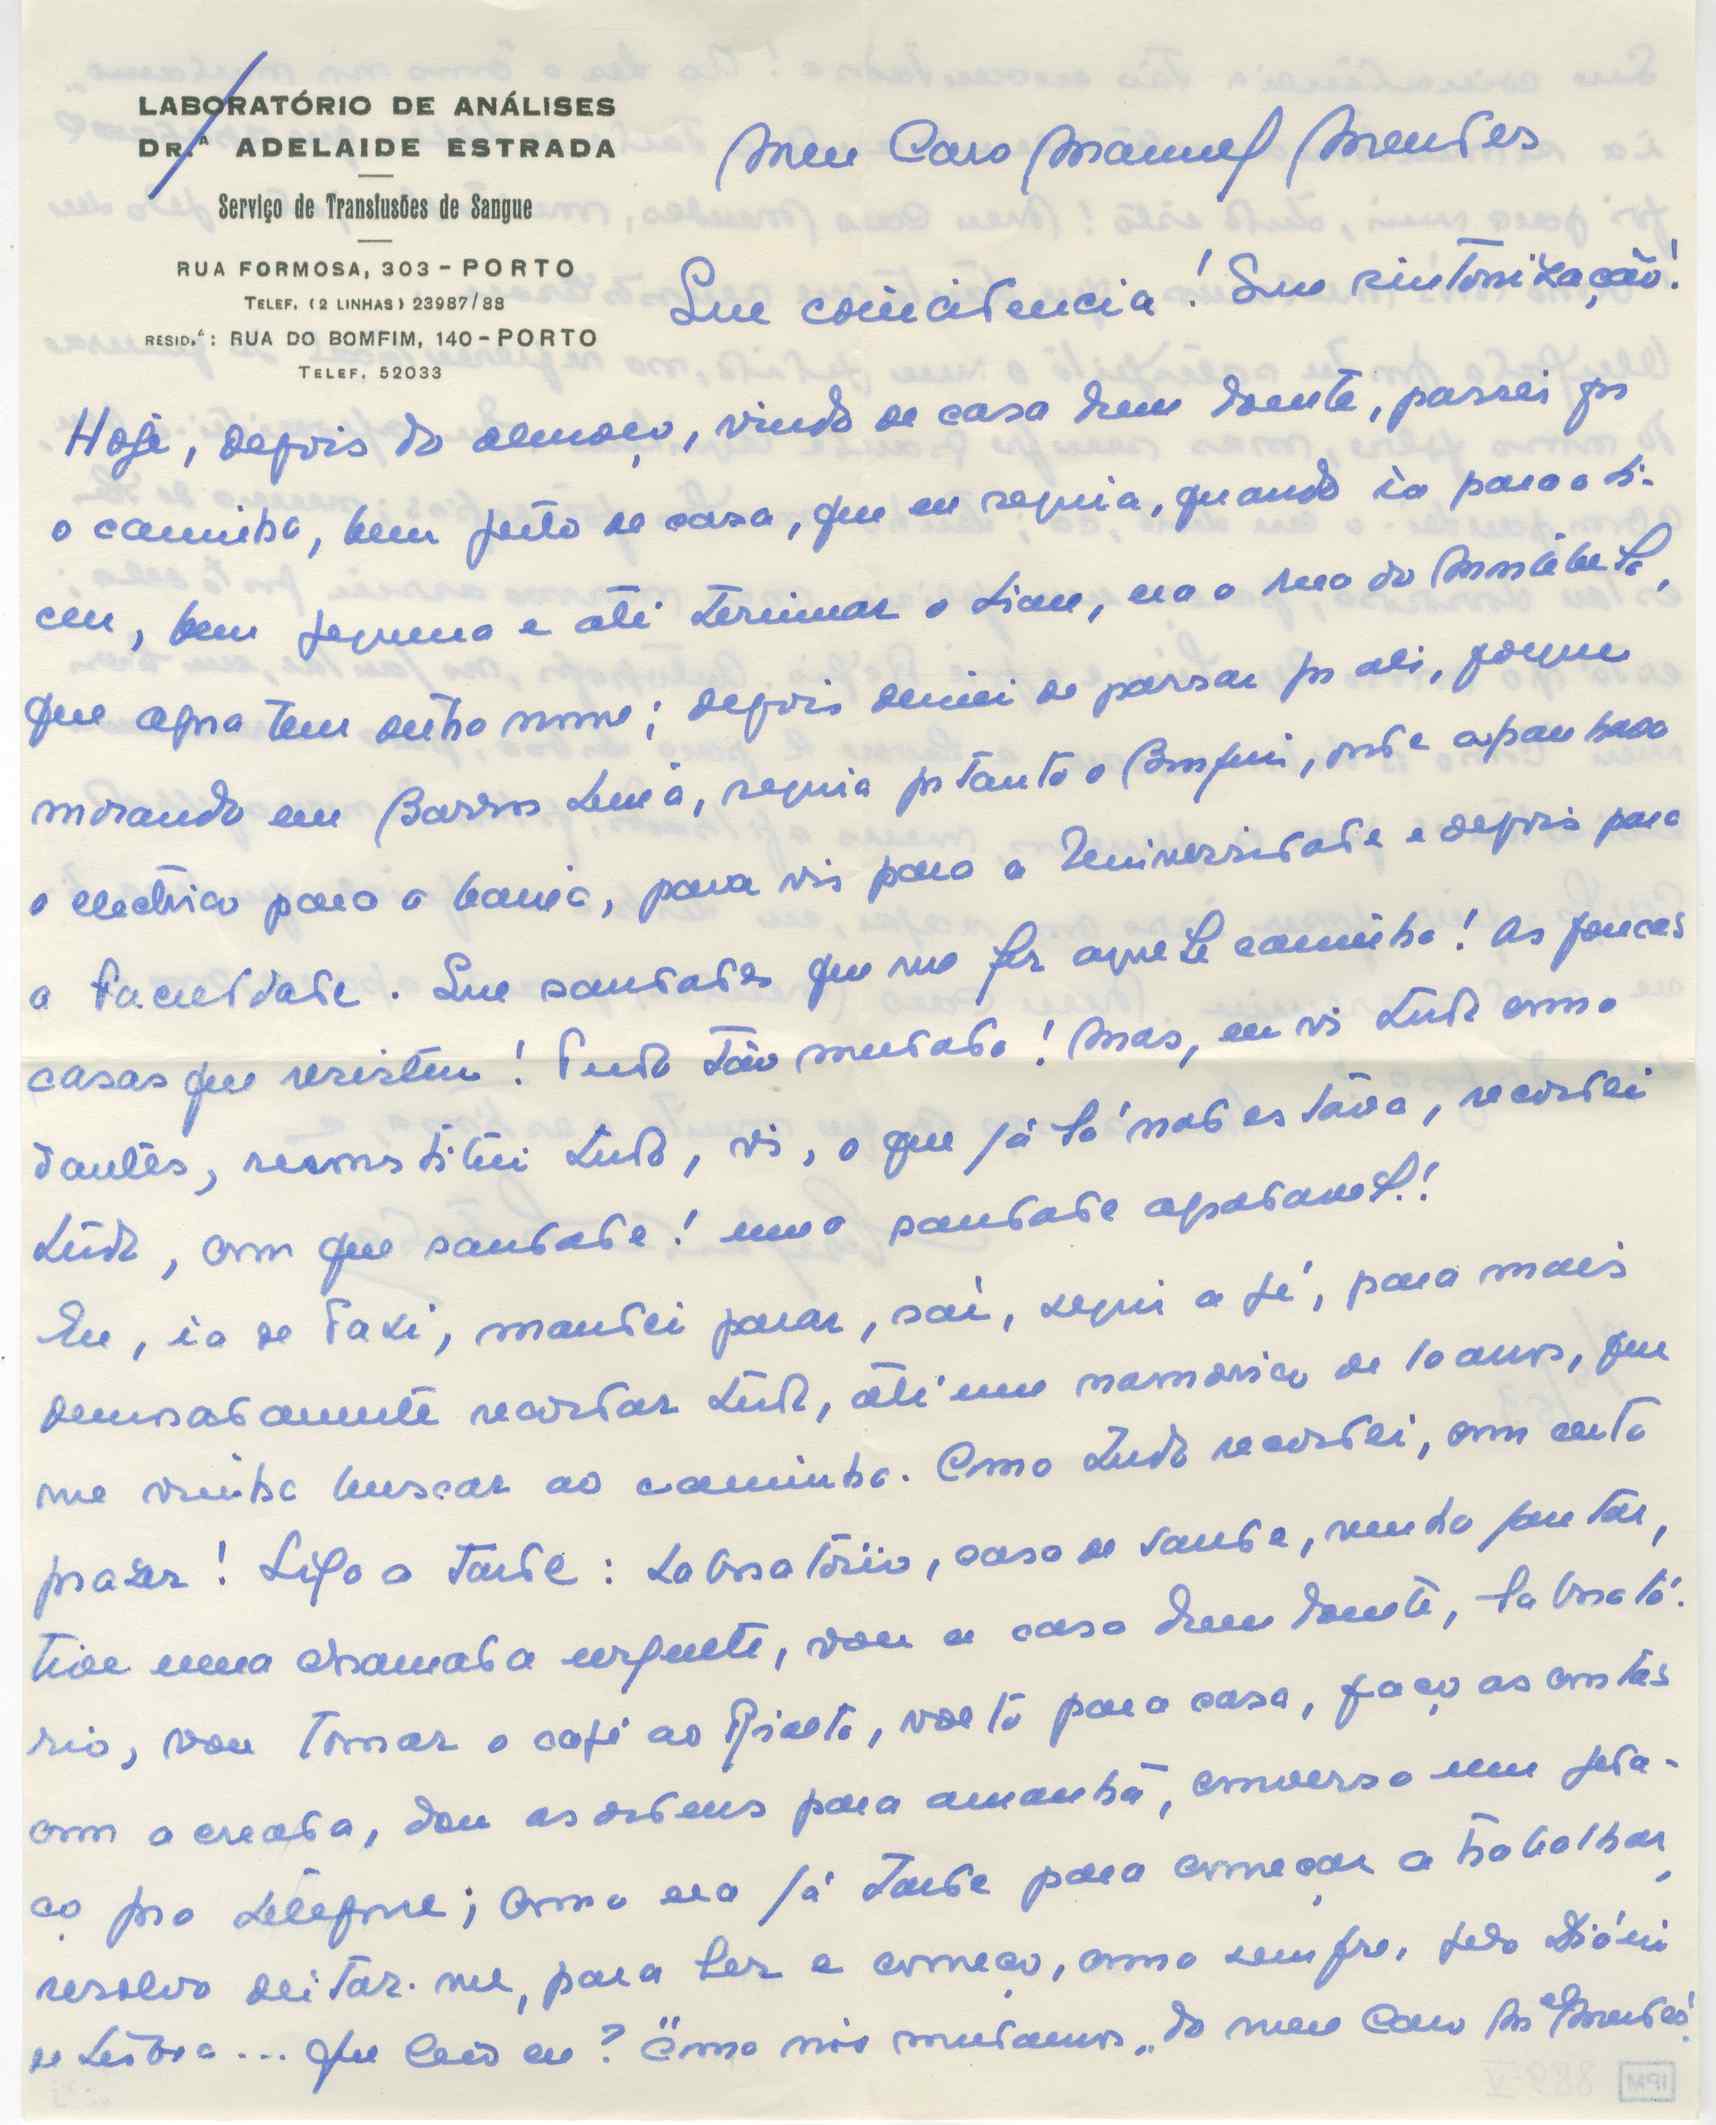 LABORATÓRIO DE ANÁLISES
DR.ª ADELAIDE ESTRADA
Serviço de Transfusões de Sangue
RUA FORMOSA, 303 - PORTO
TELEF. (2 LINHAS) 23987/88
RESID.ª: RUA DO BOMFIM, 140 - PORTO
TELEF. 52033
Meu Caro Manuel Mendes
Que coincidencia! Que sintonização!
Hoje, depois do almoço, vindo de casa dum doente, passei por
o caminho, bem perto de casa, que eu seguia, quando ia para o Li-
ceu, bem pequena e até terminar o Liceu, era a rua do Montebelo,
que agora tem outro nome; depois deixei de passar por ali, porque
morando em Barros Lima, seguia portanto o Bomfim, onde apanhava
o electrico para a baixa, para vir para a Universidade e depois para
a Faculdade. Que saudades que me fez aquele caminho! As poucas
casas que resistem! Tudo tão mudado! Mas, eu vi tudo como
dantes, reconstitui tudo, vi, o que já lá não estava, recordei
tudo, com que saudade! uma saudade agradavel!
Eu, ia de Taxi, mandei parar, saí, segui a pé, para mais
demoradamente recordar tudo, até um namorico de 10 anos, que
me vinha buscar ao caminho. Como tudo recordei, com certo
prazer! Sigo a tarde: Laboratório, casa de saude, venho jantar,
tive uma chamada urgente, vou a casa dum doente, laborató-
rio, vou tomar o café ao Rialto, volto para casa, faço as contas
com a creada, dou as ordens para amanhã, converso um peda-
ço pro telefone; como era já tarde para começar a trabalhar,
resolvo deitar-me, para ler e começo, como sempre, pelo Diário
de Lisboa... Que leio eu? "Como nós mudamos" do meu Caro Mel Mendes!
IPM